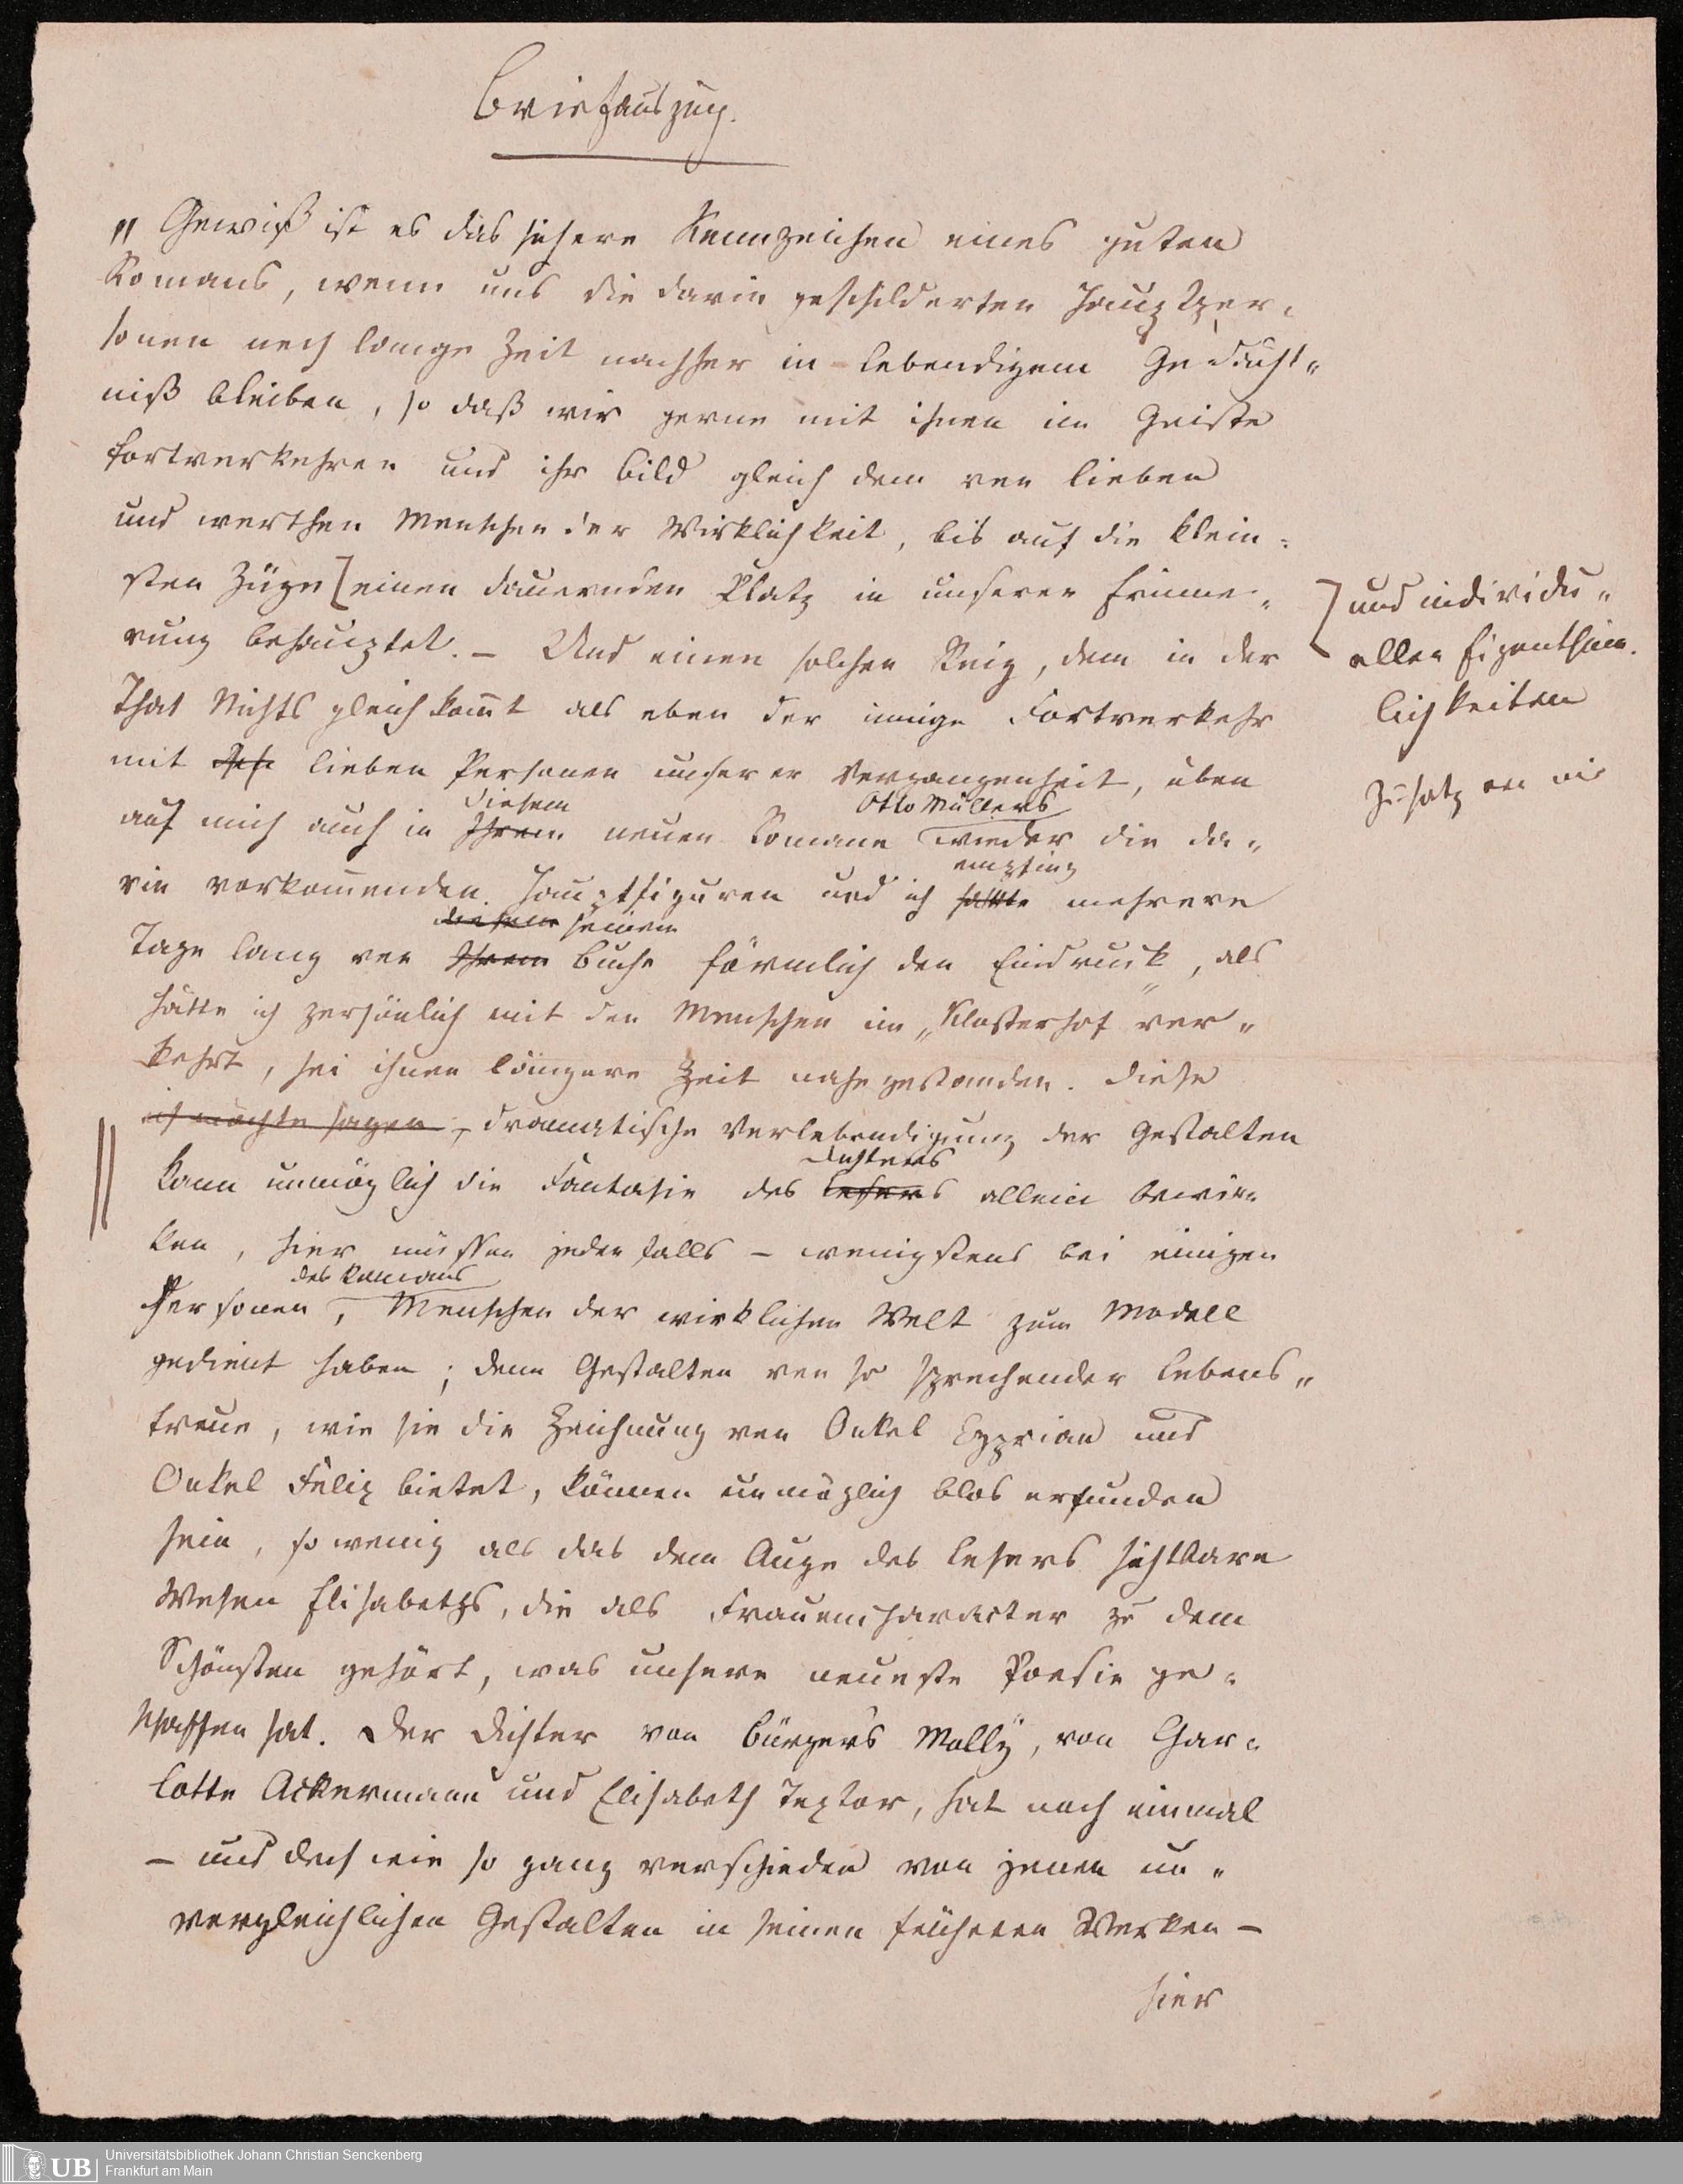 Briefauszug.
„Gewiß ist es das sichere Kennzeichen eines guten
Romans, wenn uns die darin geschilderten Hauptper-
sonen noch lange Zeit nachher in lebendigem Gedächt-
niß bleiben, so daß wir gerne mit ihnen im Geiste
fortverkehren und ihr Bild gleich dem von lieben
und werthen Menschen der Wirklichkeit, bis auf die klein-
sten Züge [einen dauernden Platz in unserer Erinne-
] und individu-
ellen Eigenthüm-
lichkeiten
Zusatz von mir
rung behauptet. – Und einen solchen Reiz, dem in der
That Nichts gleich kommt als eben der innige Fortverkehr
mit lieben Personen unserer Vergangenheit, üben
diesem Otto Müllers
auf mich auch in Ihrem neuen Romane wieder die da-
empfing
rin vorkommenden Hauptfiguren und ich hatte mehrere
diesem seinem
Tage lang von Ihrem Buche förmlich den Eindruck, als
hätte ich persönlich mit den Menschen im „Klosterhof" ver-
kehrt, sei ihnen längere Zeit nahe gestanden. Diese
ich möchte sagen –, dramatische Verlebendigung der Gestalten
Dichters
kann unmöglich die Fantasie des Lesers allein bewir-
ken, hier müssen jedenfalls – wenigstens bei einigen
des Romans
Personen, Menschen der wirklichen Welt zum Modell
gedient haben; denn Gestalten von so sprechender Lebens-
treue, wie sie die Zeichnung von Onkel Cyprian und
Onkel Felix bietet, können unmöglich blos erfunden
sein, so wenig als das dem Auge des Lesers sichtbare
Wesen Elisabeths, die als Frauencharacter zu dem
Schönsten gehört, was unsere neueste Poesie ge-
schaffen hat. Der Dichter von Bürgers Molly, von Char-
lotte Ackermann und Elisabeth Textor, hat noch einmal
– und doch wie so ganz verschieden von jenen un-
vergleichlichen Gestalten in seinen früheren Werken –
hier
Universitätsbibliothek Johann Christian Senckenberg
Frankfurt am Main
UB